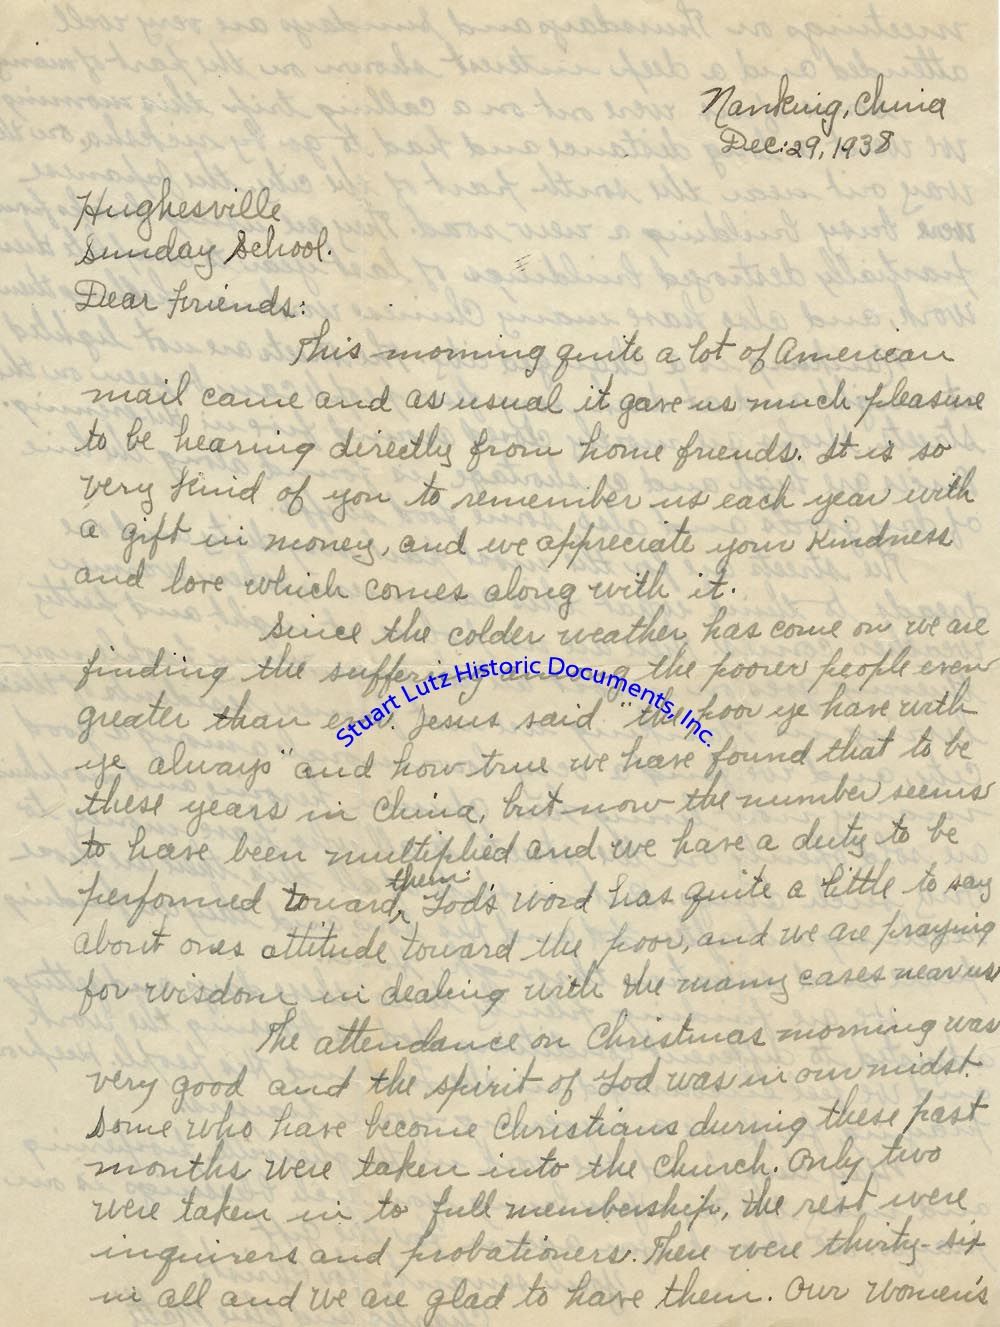 Nanking, China
Dec. 29, 1938
Hughesville
Sunday School.
Dear Friends:
This morning quite a lot of American
mail came and as usual it gave us much pleasure
to be hearing directly from home friends. It is so
very kind of you to remember us each year with
a gift in money, and we appreciate your kindness
and love which comes along with it.
Since the colder weather has come on we are
finding the suffering among the poorer people even
greater than ever. Jesus said "the poor ye have with
ye always" and how true we have found that to be
these years in China, but now the number seems
to have been multiplied and we have a duty to be
them.
performed toward God's word has quite a little to say
about ones attitude toward the poor, and we are praying
for wisdom in dealing with the many cases near us
The attendance on Christmas morning was
very good and the spirit of God was in our midst.
Some who have become Christians during these past
months were taken into the church. Only two
were taken in to full membership, the rest were
inquirers and probationers. There were thirty-six
in all and we are glad to have them. Our women's
Stuart Lutz Historic Documents, Inc.